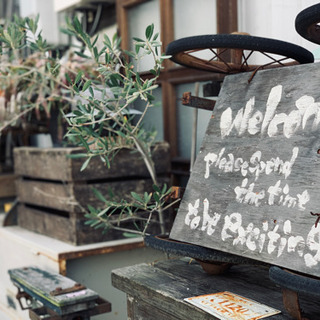 Welcom
please spend
the time
to be exciting